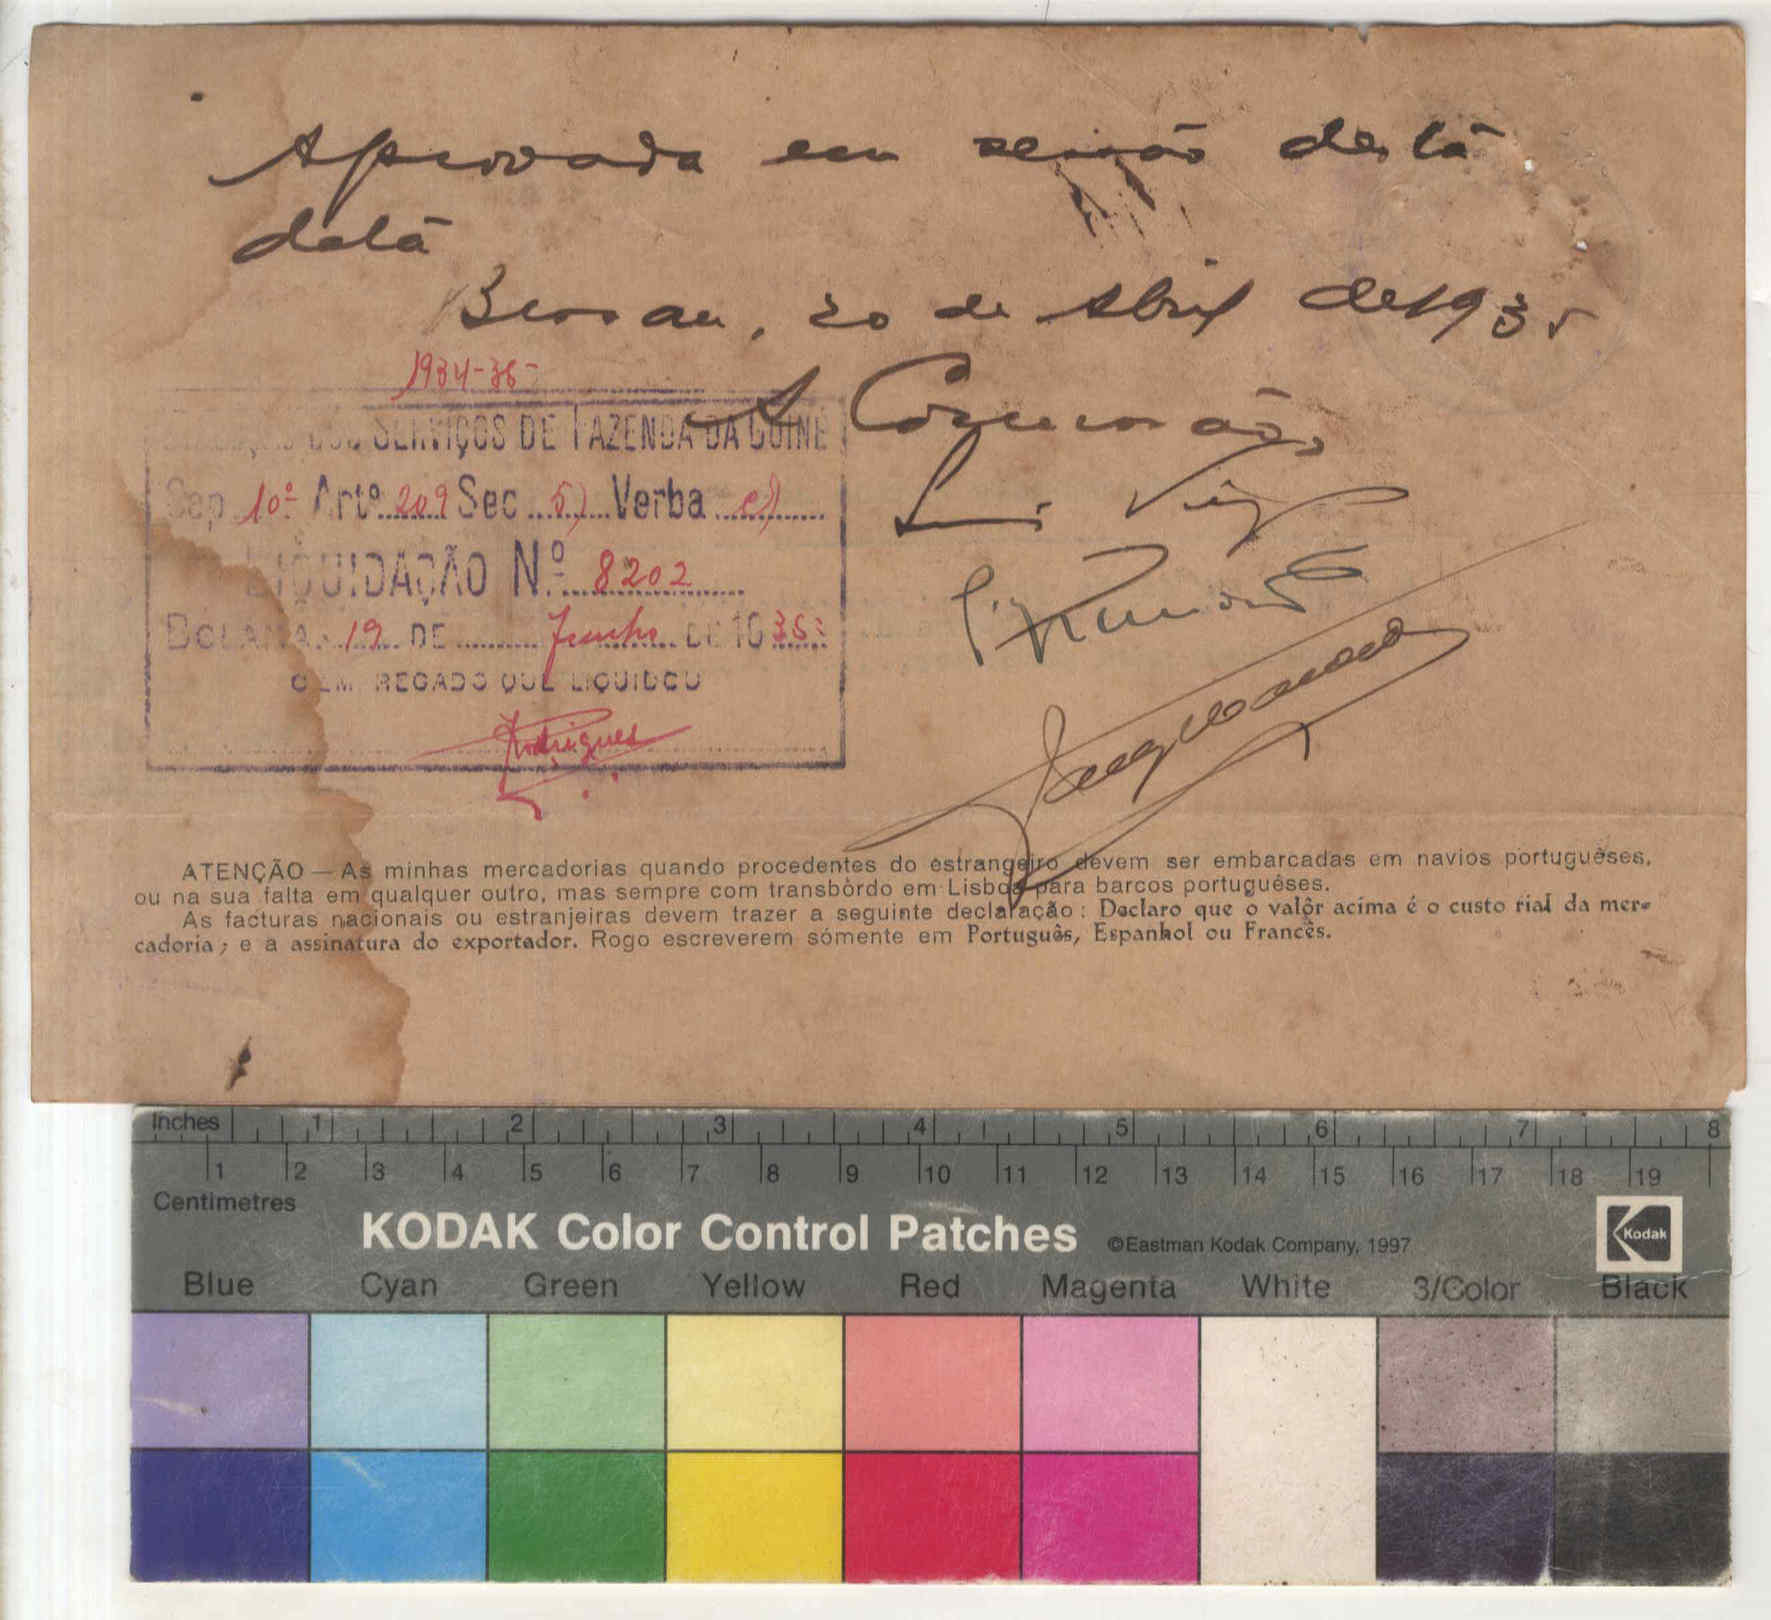 Aprovada em sessão desta
data
Bissau, 20 de Abril de 1935
A Comissão,
Luis
1934-35-
DOS SERVIÇOS DE FAZENDA DA GUINÉ
Cap. 10º Artº 209 Sec 5) Verba e)
LIQUIDAÇÃO N.º 8202
BOLAMA, 19 DE Junho DE 1935
O EMPREGADO QUE LIQUIDOU
Rodrigues
ATENÇÃO — As minhas mercadorias quando procedentes do estrangeiro devem ser embarcadas em navios portuguêses,
ou na sua falta em qualquer outro, mas sempre com transbôrdo em Lisboa para barcos portuguêses.
As facturas nacionais ou estranjeiras devem trazer a seguinte declaração: Declaro que o valôr acima é o custo rial da mer-
cadoria; e a assinatura do exportador. Rogo escreverem sómente em Português, Espanhol ou Francês.
Inches 1 2 3 4 5 6 7 8
1 2 3 4 5 6 7 8 9 10 11 12 13 14 15 16 17 18 19
Centimetres
KODAK Color Control Patches ©Eastman Kodak Company, 1997 Kodak
Blue Cyan Green Yellow Red Magenta White 3/Color Black